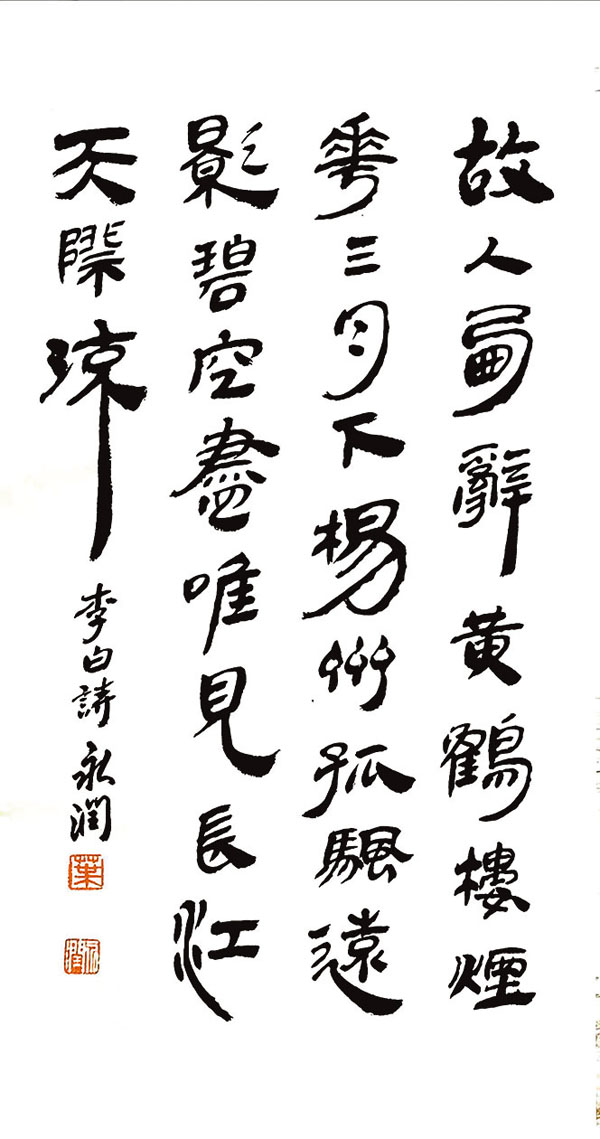 故人西辭黄鶴樓煙
華三月下楊州孤颿遠
影碧空盡唯見長江
天際流
李白詩 永潤
葉